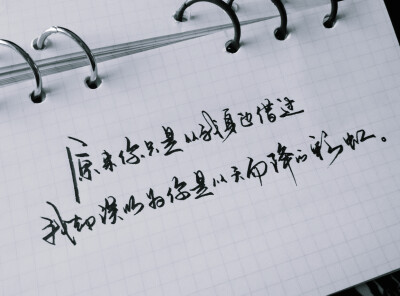 原来你只是从我身边借过
我却误以为你是从天而降的彩虹。